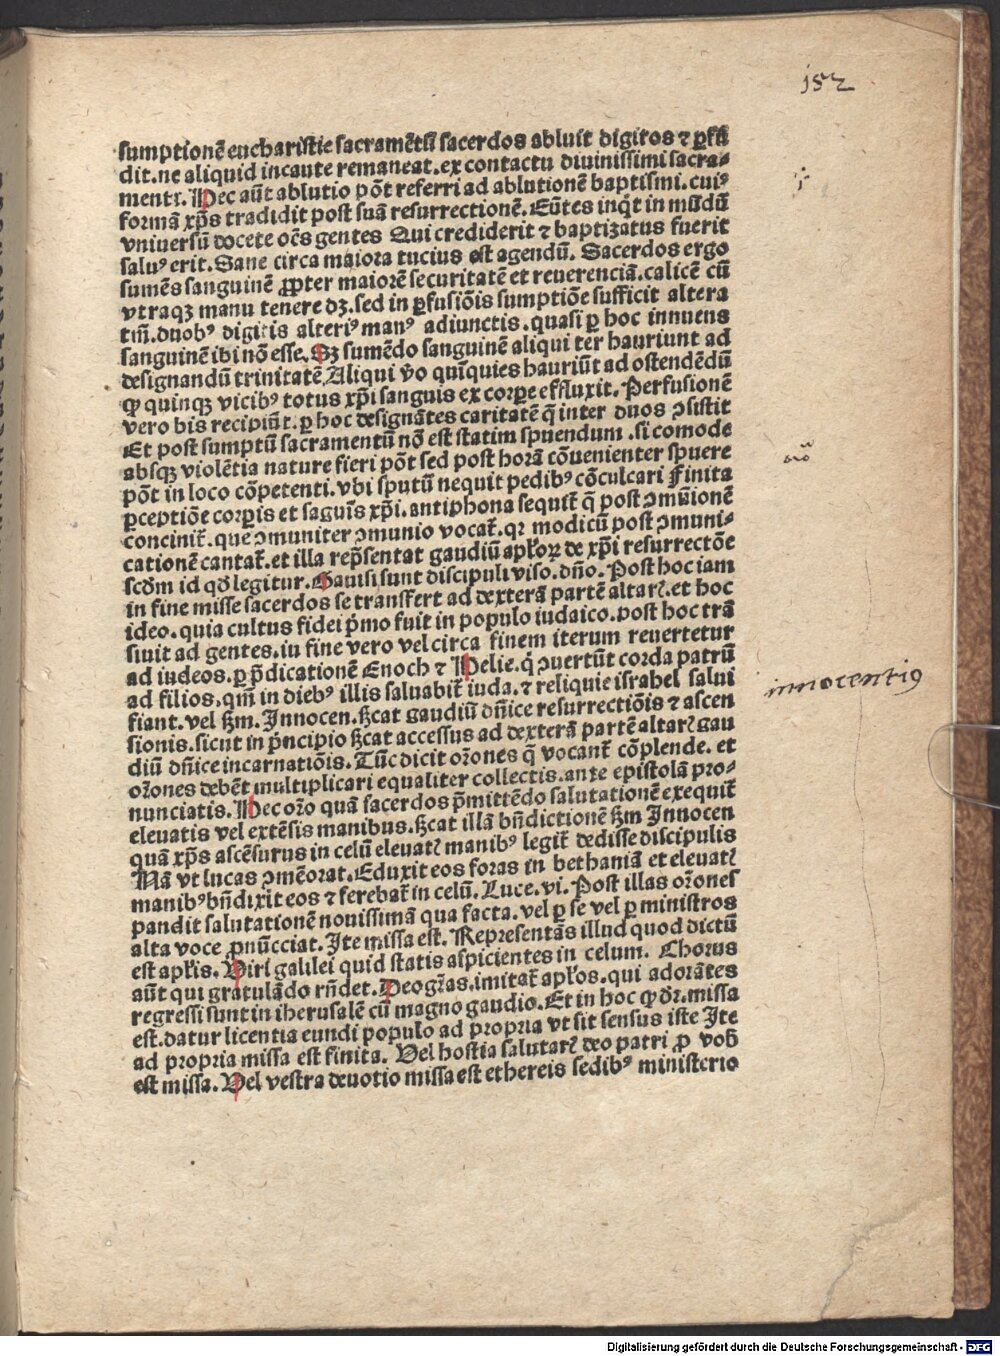 152
sumptionē eucharistie sacramētū sacerdos abluit digitos ⁊ ꝑfū
dit. ne aliquid incaute remaneat. ex contactu diuinissimi sacra-
menti. Hec aūt ablutio pōt referri ad ablutionē baptismi. cuiꝰ
formā xp̄s tradidit post suā resurrectionē. Eūtes inqͥt in mūdū
vniuersū docete oēs gentes Qui crediderit ⁊ baptizatus fuerit
saluꝰ erit. Sane circa maiora tucius est agendū. Sacerdos ergo
sumēs sanguinē ꝓpter maiorē securitatē et reuerenciā. calicē cū
vtraqꝫ manu tenere dꝫ. sed in ꝑfusiōis sumptiōe sufficit altera
tm̄. duobꝰ digitis alteriꝰ manꝰ adiunctis. quasi ꝑ hoc innuens
sanguinē ibi nō esse. Sꝫ sumēdo sanguinē aliqui ter hauriunt ad
designandū trinitatē Aliqui v̄o quīquies hauriūt ad ostendēdū
ꝙ quinqꝫ vicibꝰ totus xp̄i sanguis ex corꝑe effluxit. Perfusionē
vero bis recipiūt. ꝑ hoc designātes caritatē q̄ inter duos ↄsistit
Et post sumptū sacramentū nō est statim spuendum. si comode
absqꝫ violētia nature fieri pōt sed post horā cōuenienter spuere
pōt in loco cōpetenti. vbi sputū nequit pedibꝰ cōculcari Finita
ꝑceptiōe corꝑis et saguīs xp̄i. antiphona sequit̄ q̄ post ↄmūionē
concinit̄. que ↄmuniter ↄmunio vocat̄. qꝛ modicū post ↄmuni-
cationē cantat̄. et illa rep̄sentat gaudiū apl̄oꝝ de xp̄i resurrectōe
scd̄m id qd̄ legitur. Gauisi sunt discipuli viso. dn̄o. Post hoc iam
in fine misse sacerdos se transfert ad dexterā partē altarꝭ. et hoc
ideo. quia cultus fidei p̄mo fuit in populo iudaico. post hoc trā
siuit ad gentes. in fine vero vel circa finem iterum reuertetur
ad iudeos. ꝑ p̄dicationē Enoch ⁊ Helie. q̄ ↄuertūt corda patrū
ad filios. qm̄ in diebꝰ illis saluabit̄ iuda. ⁊ reliquie israhel salui
fiant. vel ẜm. Innocen. ẜcat gaudiū dn̄ice resurrectiōis ⁊ ascen
sionis. sicut in p̄ncipio ẜcat accessus ad dexterā partē altarꝭ gau
diū dn̄ice incarnatiōis. Tūc dicit or̄ones q̄ vocant̄ cōplende. et
or̄ones debēt multiplicari equaliter collectis. ante epistolā pro-
nunciatis. Hec or̄o quā sacerdos p̄mittēdo salutationē exequit̄
eleuatis vel extēsis manibus. ẜcat illā bn̄dictionē ẜm Innocen
quā xp̄s ascēsurus in celū eleuatꝭ manibꝰ legit̄ dedisse discipulis
Nā vt lucas ↄmēorat. Eduxit eos foras in bethaniā et eleuatꝭ
manibꝰ bn̄dixit eos ⁊ ferebat̄ in celū. Luce. vi. Post illas or̄ones
pandit salutationē nouissimā qua facta. vel ꝑ se vel ꝑ ministros
alta voce ꝓnūcciat. Ite missa est. Representās illud quod dictū
est apl̄is. Viri galilei quid statis aspicientes in celum. Chorus
aūt qui gratulādo rn̄det. Deogr̄as. imitat̄ apl̄os. qui adorātes
regressi sunt in iherusalē cū magno gaudio. Et in hoc ꝙ dr̄. missa
est. datur licentia eundi populo ad propria vt sit sensus iste Ite
ad propria missa est finita. Vel hostia salutarꝭ deo patri ꝓ vob̄
est missa. Vel vestra deuotio missa est ethereis sedibꝰ ministerio
innocentiꝰ
Digitalisierung gefördert durch die Deutsche Forschungsgemeinschaft - DFG